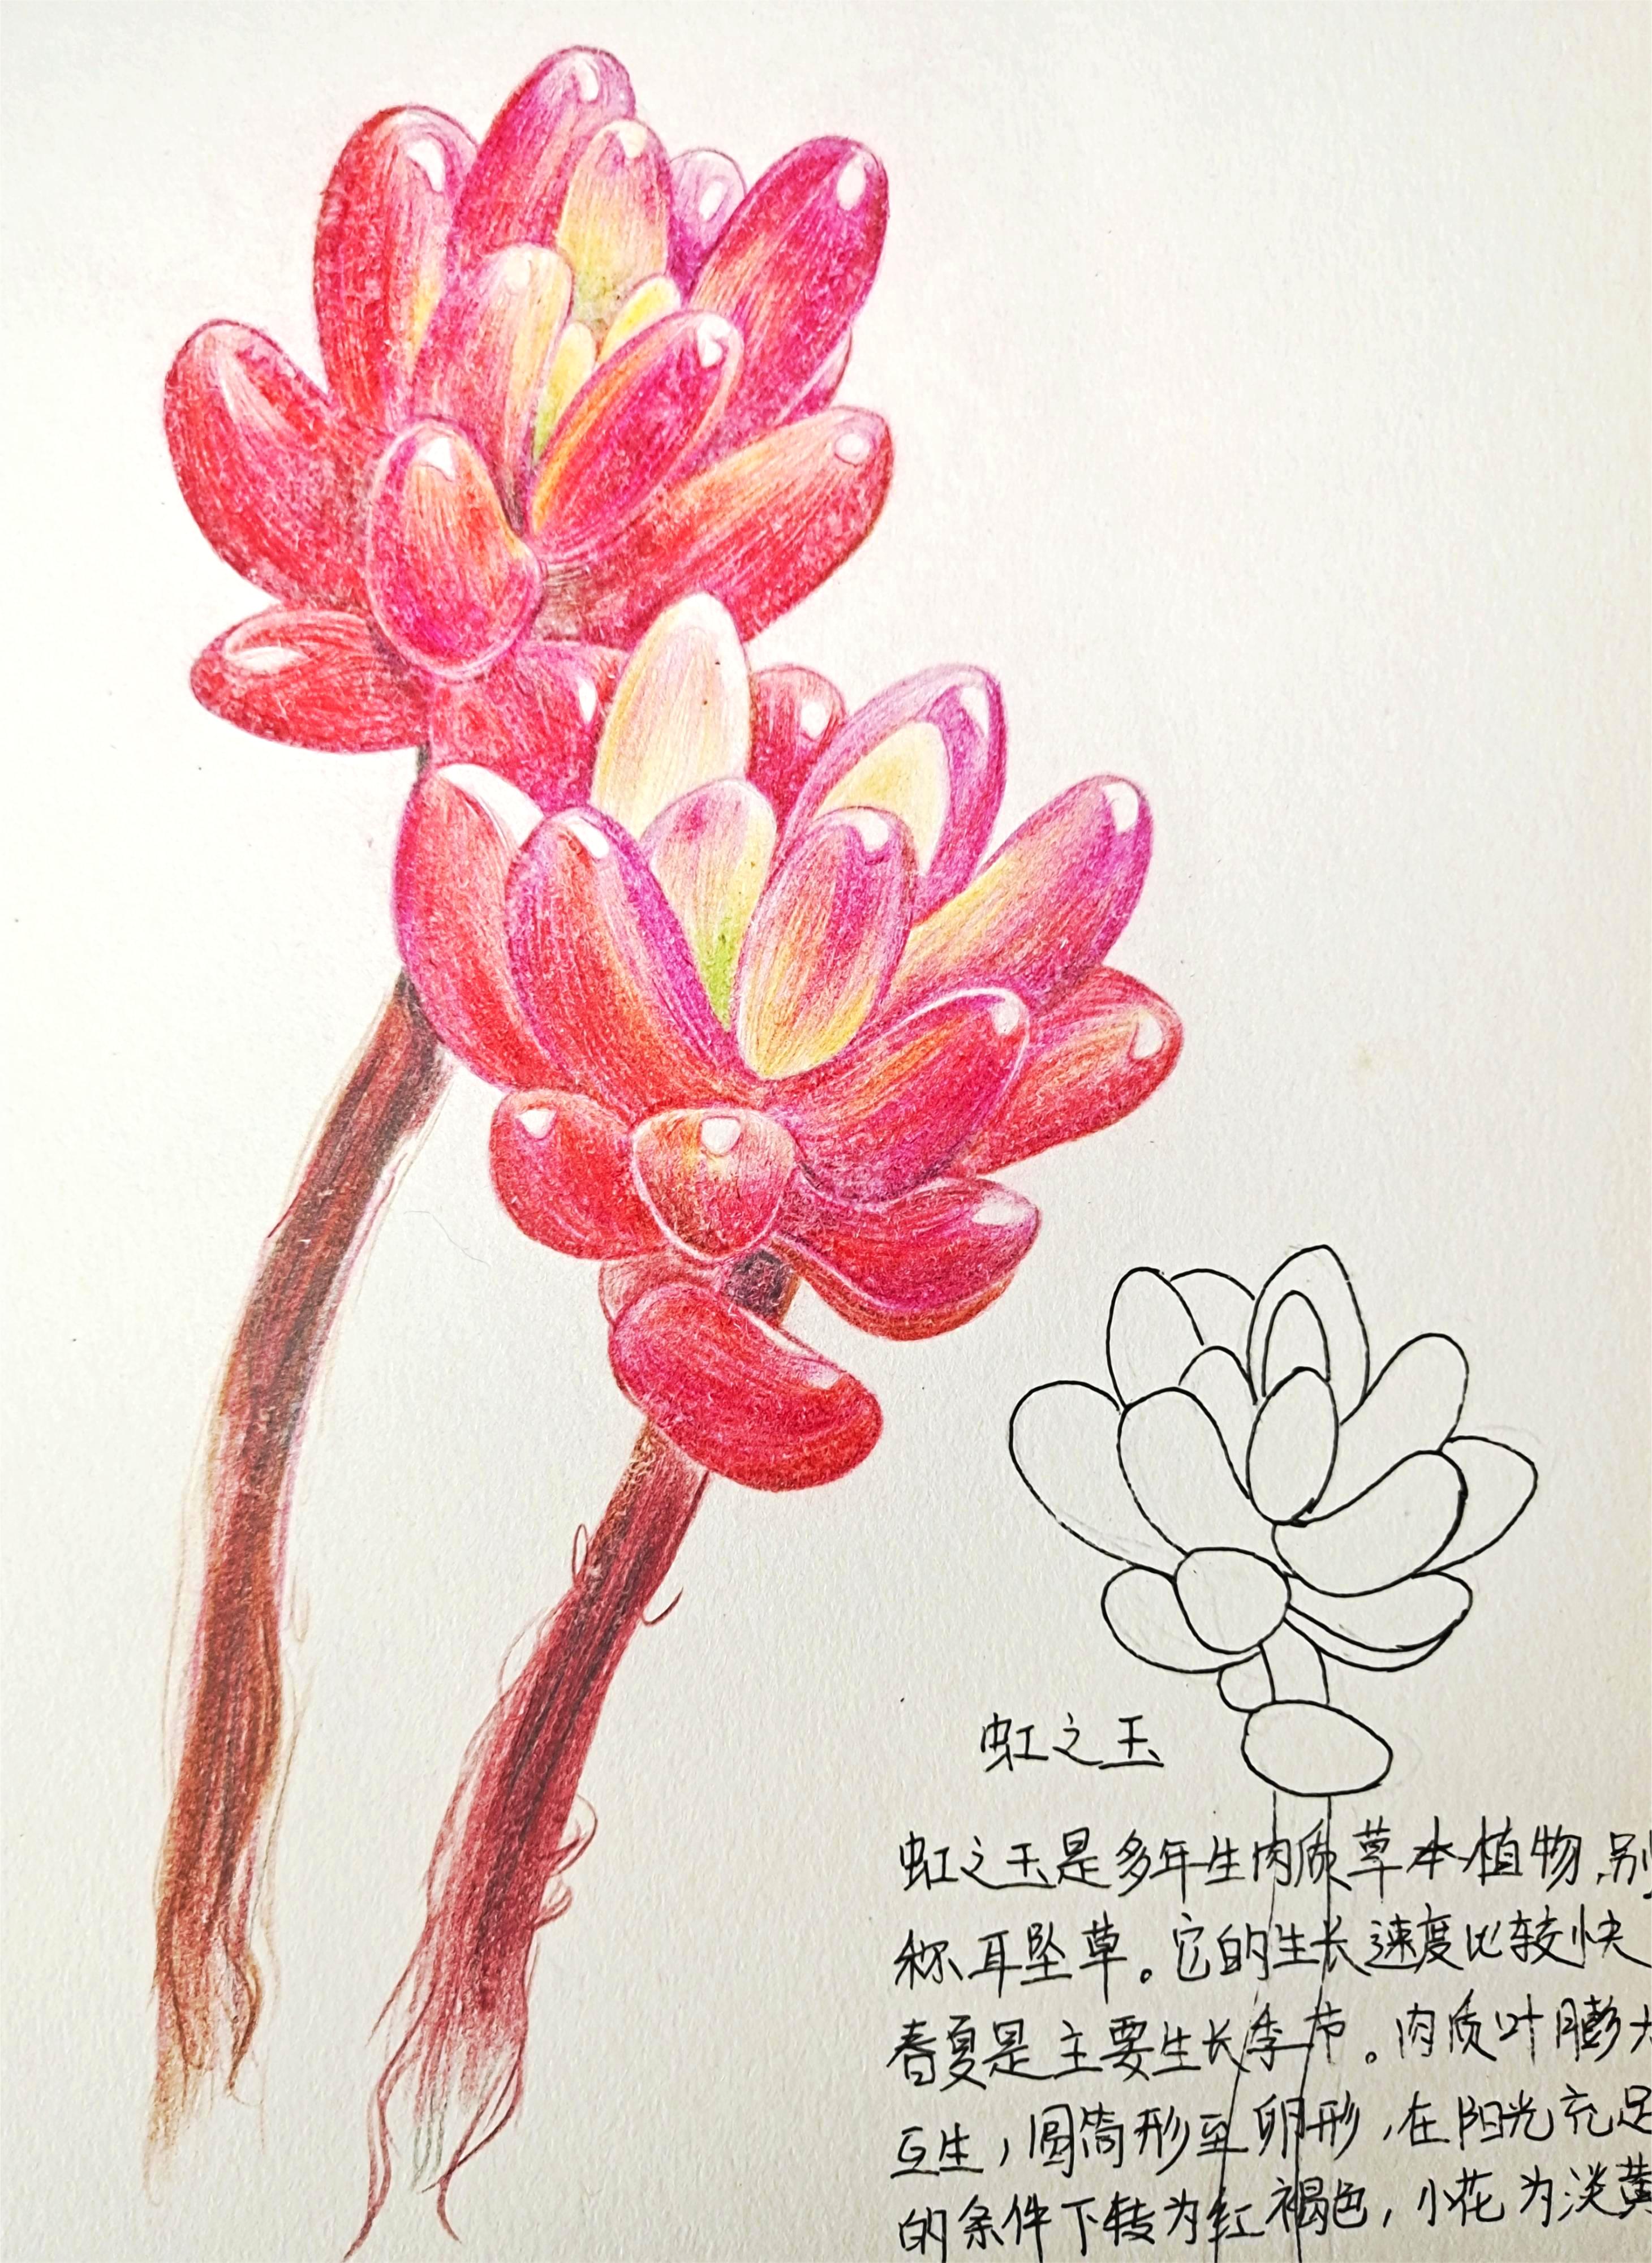 虹之玉
虹之玉是多年生肉质草本植物,别
称耳坠草。它的生长速度比较快
春夏是主要生长季节。肉质叶膨大
互生,圆筒形至卵形,在阳光充足
的条件下转为红褐色,小花为淡黄